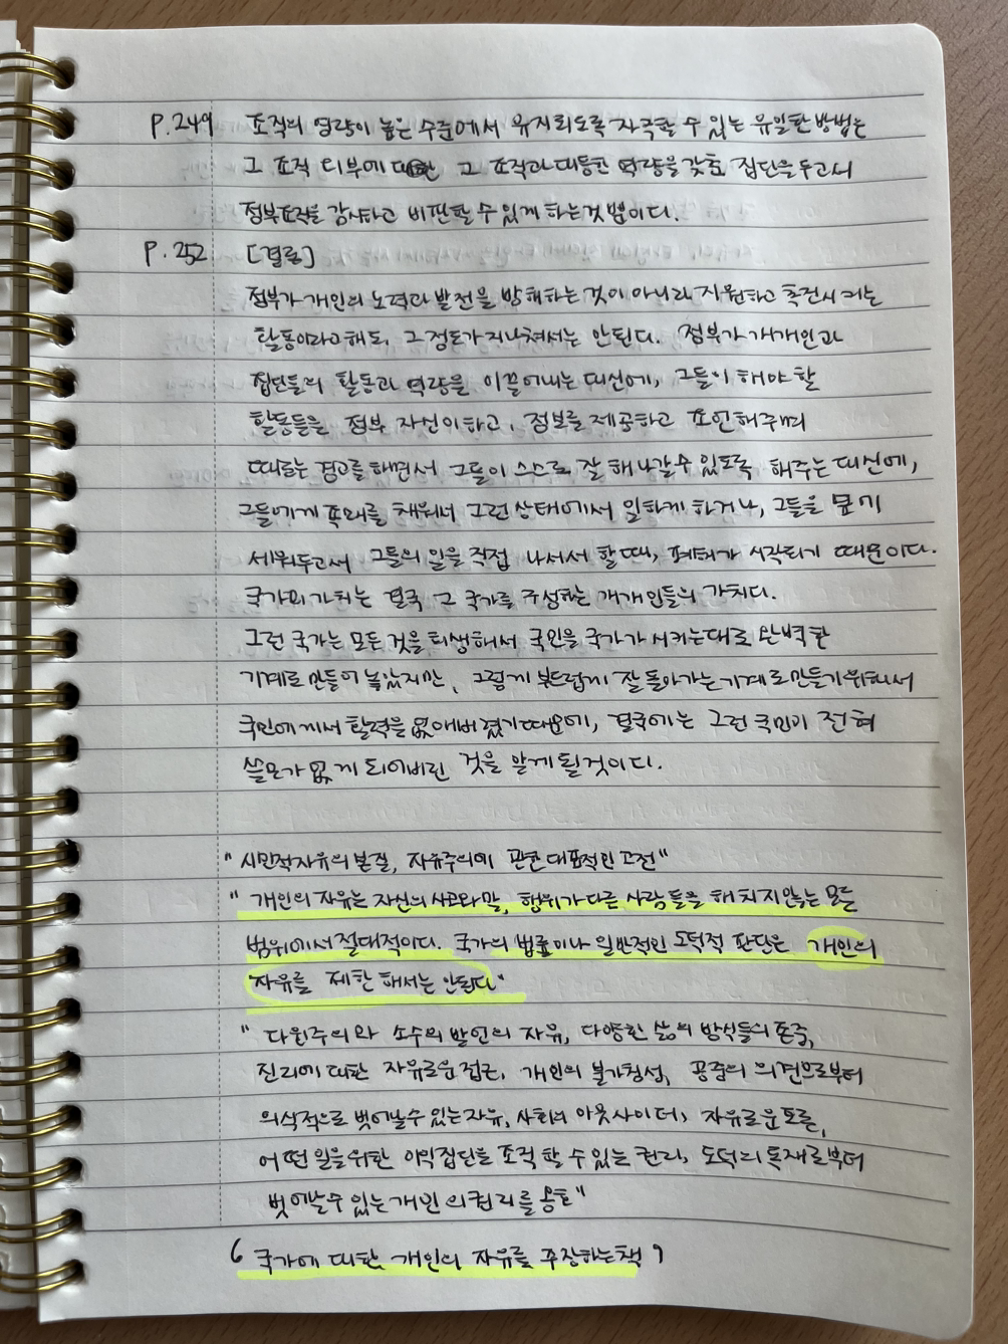 P.249 조직의 역량이 높은 수준에서 유지되도록 자극할 수 있는 유일한 방법은
그 조직 외부에 그 조직과 대등한 역량을 갖춘 집단을 두고서
정부조직을 감시하고 비판할 수 있게 하는것 뿐이다.
P.252 [결론]
정부가 개인의 노력과 발전을 방해하는 것이 아니라 지원하고 촉진시키는
활동이라고해도, 그 정도가 지나쳐서는 안된다. 정부가 개개인과
집단들의 활동과 역량을 이끌어내는 대신에, 그들이 해야 할
활동들을 정부 자신이 하고, 정보를 제공하고 조언해주며
때로는 경고를 해면서 그들이 스스로 잘 해나갈 수 있도록 해주는 대신에,
그들에게 족쇄를 채워서 그런 상태에서 일하게 하거나, 그들을 옆에
세워두고서 그들의 일을 직접 나서서 할 때, 폐해가 시작되기 때문이다.
국가의 가치는 결국 그 국가를 구성하는 개개인들의 가치다.
그런 국가는 모든 것을 희생해서 국민을 국가가 시키는대로 완벽한
기계로 만들어 놓았지만, 그렇게 부드럽게 잘 돌아가는 기계로 만들기 위해서
국민에게서 활력을 없애버렸기 때문에, 결국에는 그런 국민이 전혀
쓸모가 없게 되어버린 것을 알게 될 것이다.
"시민적자유의 본질, 자유주의에 관한 대표적인 고전"
"개인의 자유는 자신의 사고와 말, 행위가 다른 사람들을 해치지 않는 모든
범위에서 절대적이다. 국가의 법률이나 일반적인 도덕적 판단은 개인의
자유를 제한해서는 안된다"
"다원주의와 소수의 발언의 자유, 다양한 삶의 방식들의 존중,
진리에 대한 자유로운 접근, 개인의 불가침성, 공중의 의견으로부터
의식적으로 벗어날 수 있는 자유, 사회의 아웃사이더, 자유로운 토론,
어떤 일을 위한 이익집단을 조직 할 수 있는 권리, 도덕의 독재로부터
벗어날 수 있는 개인의 권리를 옹호"
'국가에 대한 개인의 자유를 주장하는 책'